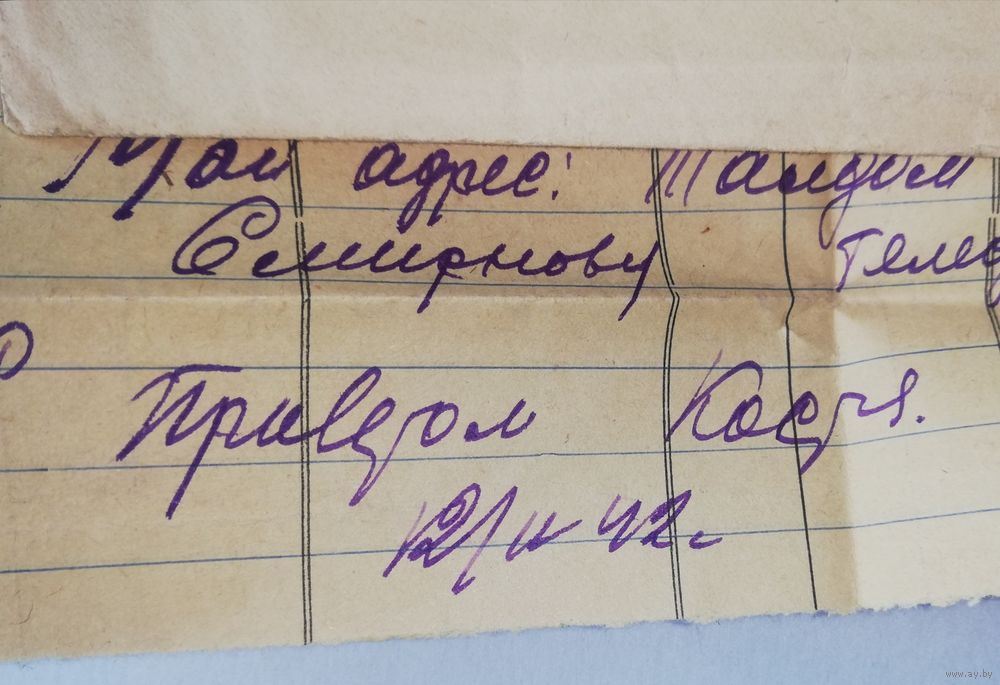 Мой адрес: Талдом
Смирнову Телег
Приветом Костя.
12/II 42г.
www.ay.by